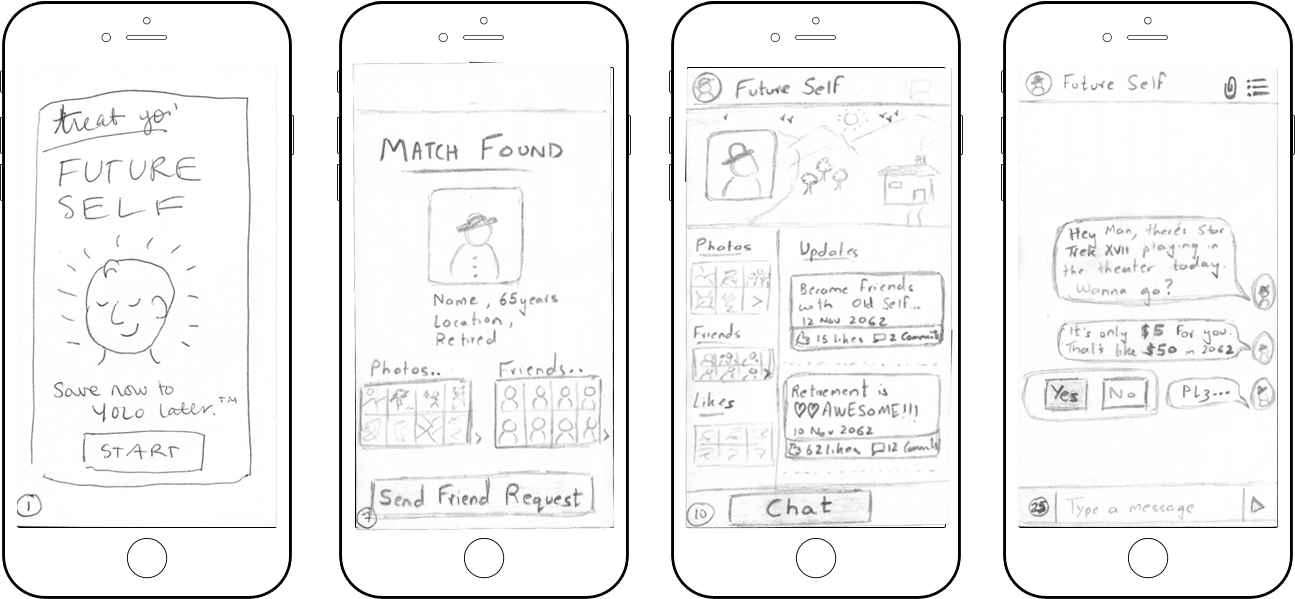 treat yo'
FUTURE
SELF
Save now to
YOLO later.™
START
1
MATCH FOUND
Name, 65 years
Location,
Retired
Photos..
Friends..
Send Friend Request
7
Future Self
Photos
Friends
Likes
Updates
Become Friends
with Old Self...
12 Nov 2062
15 likes 2 Comments
Retirement is
♡♡AWESOME!!!
10 Nov 2062
62 likes 12 Commnts
Chat
10
Future Self
Hey Man, there's Star
Trek XVII playing in
the theater today.
Wanna go?
It's only $5 for you.
That's like $50 in 2062
Yes
No
PLз...
25
Type a message